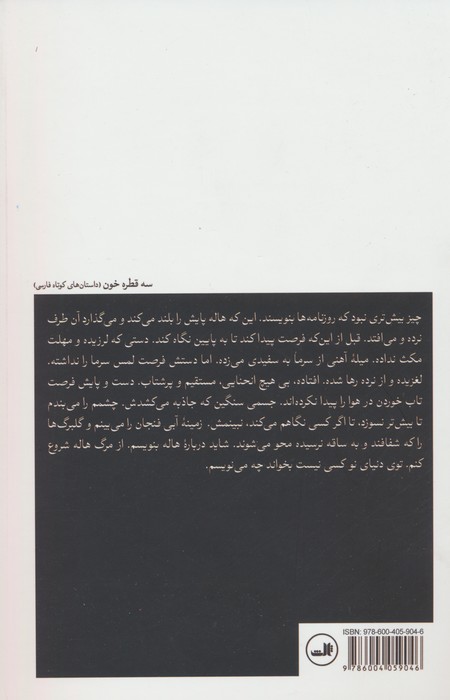 سه قطره خون (داستان‌های کوتاه فارسی)
چیز بیش‌تری نبود که روزنامه‌ها بنویسند. این که هاله پایش را بلند می‌کند و می‌گذارد آن طرف
نرده و می‌افتد. قبل از این‌که فرصت پیدا کند تا به پایین نگاه کند. دستی که لرزیده و مهلت
مکث نداده، میلهٔ آهنی از سرما به سفیدی می‌زده. اما دستش فرصت لمس سرما را نداشته،
لغزیده و از نرده رها شده. افتاده، بی هیچ انحنایی، مستقیم و پرشتاب. دست و پایش فرصت
تاب خوردن در هوا را پیدا نکرده‌اند. جسمی سنگین که جاذبه می‌کشدش. چشمم را می‌بندم
تا بیش‌تر نسوزد، تا اگر کسی نگاهم می‌کند، نبینمش. زمینهٔ آبی فنجان را می‌بینم و گلبرگ‌ها
را که شفافند و به ساقه نرسیده محو می‌شوند. شاید دربارهٔ هاله بنویسم. از مرگ هاله شروع
کنم. توی دنیای نو کسی نیست بخواند چه می‌نویسم.
ISBN: 978-600-405-904-6
ثالث
9786004059046